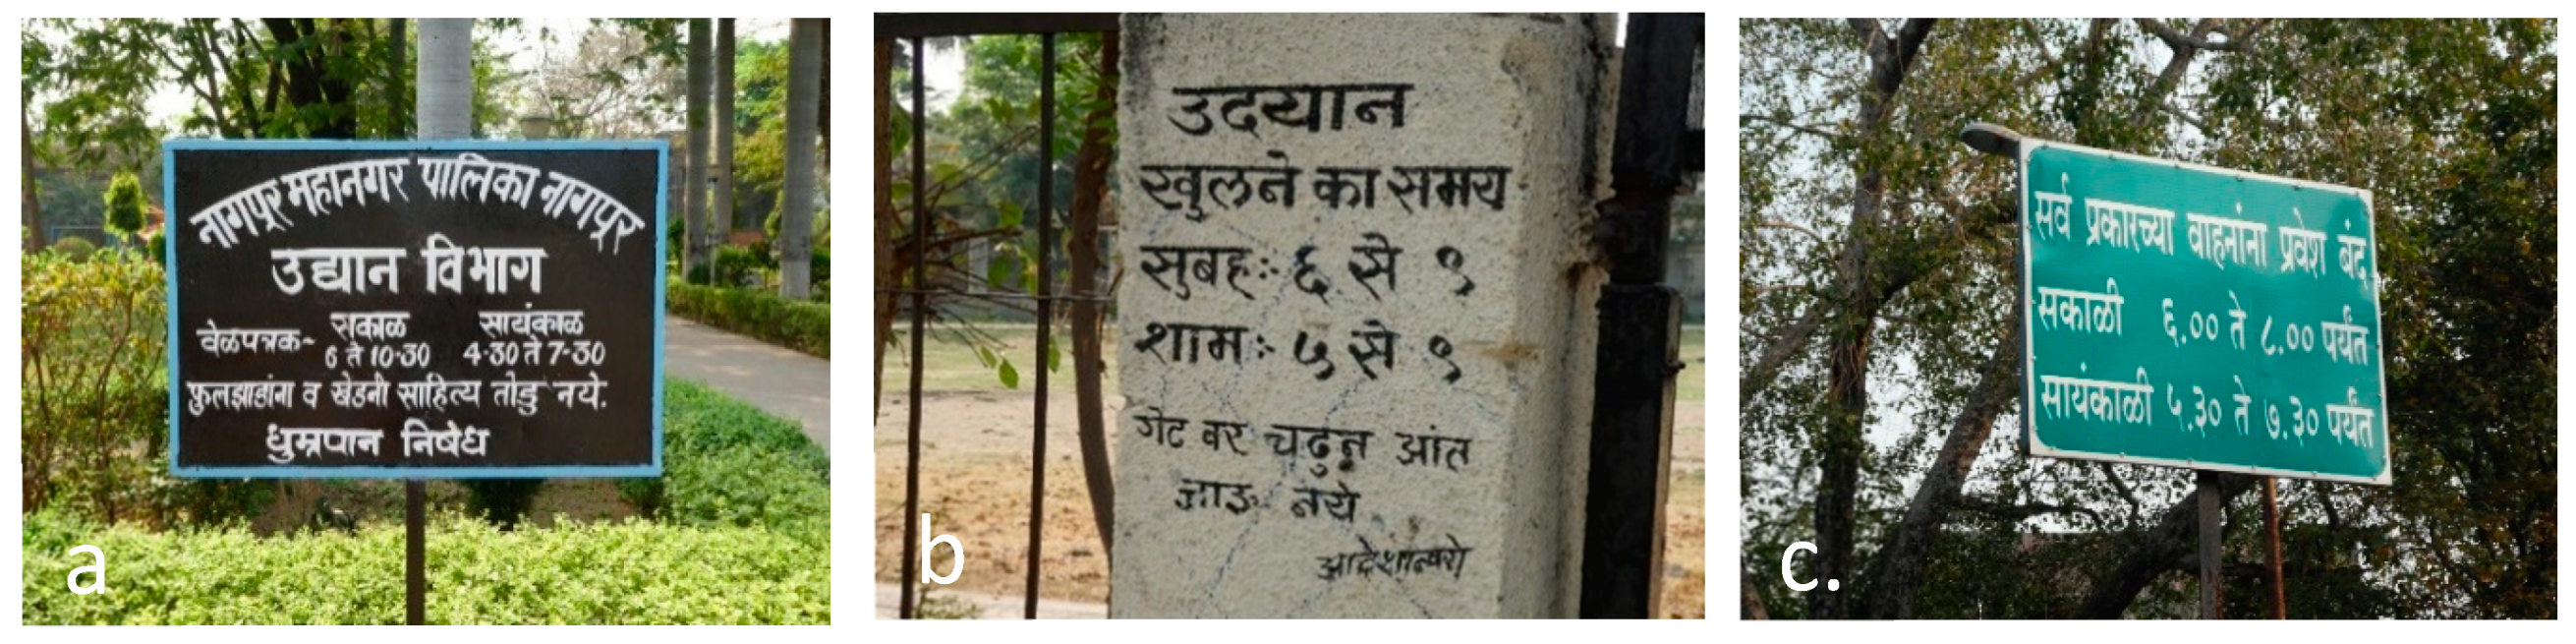 नागपूर महानगर पालिका नागपूर
उद्यान विभाग
वेळपत्रक- सकाळ सायंकाळ
6 ते 10-30 4-30 ते 7-30
फुलझाडांना व खेडनी साहित्य तोडु नये.
धुम्रपान निषेध
a
उदयान
खुलने का समय
सुबह:- ६ से ९
शाम:- ५ से ९
गेट वर चढुन आंत
जाऊ नये
आदेशान्वये
b
सर्व प्रकारच्या वाहनांना प्रवेश बंद
सकाळी ६.०० ते ८.०० पर्यंत
सायंकाळी ५.३० ते ७.३० पर्यंत
c.